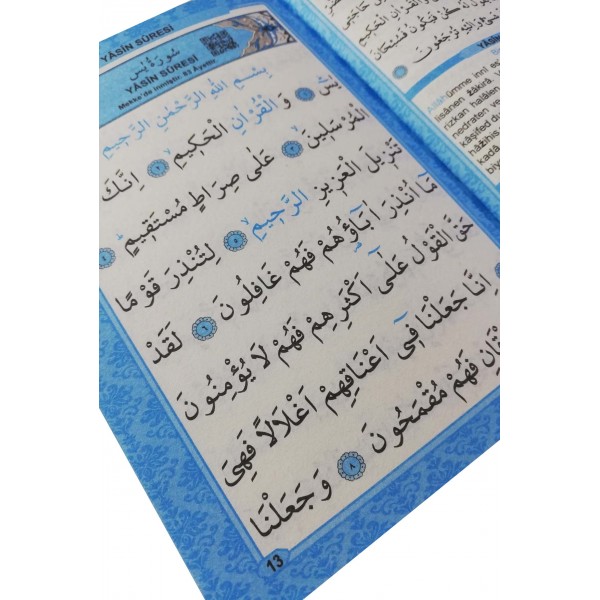 YÂSİN SÛRESİ
سُورَةُ يٰسٓ
YÂSİN SÛRESİ
Mekke'de inmiştir. 83 Âyettir.
بِسْمِ اللّٰهِ الرَّحْمٰنِ الرَّحٖيمِ
يٰسٓ ﴿١﴾ وَالْقُرْاٰنِ الْحَكٖيمِ ﴿٢﴾ اِنَّكَ لَمِنَ
الْمُرْسَلٖينَ ﴿٣﴾ عَلٰى صِرَاطٍ مُسْتَقٖيمٍ ﴿٤﴾
تَنْزٖيلَ الْعَزٖيزِ الرَّحٖيمِ ﴿٥﴾ لِتُنْذِرَ قَوْمًا
مَٓا اُنْذِرَ اٰبَٓاؤُ۬هُمْ فَهُمْ غَافِلُونَ ﴿٦﴾ لَقَدْ
حَقَّ الْقَوْلُ عَلٰٓى اَكْثَرِهِمْ فَهُمْ لَا يُؤْمِنُونَ
اِنَّا جَعَلْنَا فٖٓي اَعْنَاقِهِمْ اَغْلَالًا فَهِيَ
فَهُمْ مُقْمَحُونَ ﴿٨﴾ وَجَعَلْنَا
13
وَاِلَيْهِ تُرْجَعُونَ
YÂSİN
Allâhümme innî es
lisânen zâkirâ, v
rizkan halâlen
nedraten ve
kâşifed du
hâzihis
kadâ